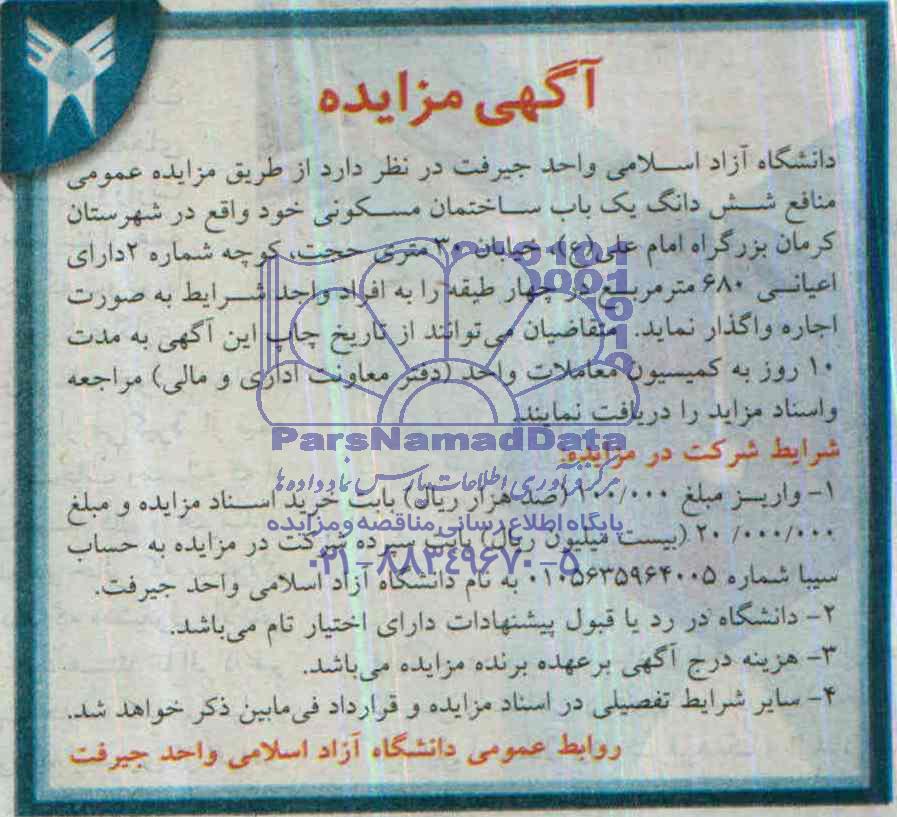 آگهی مزایده
دانشگاه آزاد اسلامی واحد جیرفت در نظر دارد از طریق مزایده عمومی
منافع شش دانگ یک باب ساختمان مسکونی خود واقع در شهرستان
کرمان بزرگراه امام علی(ع)، خیابان ۳۰ متری حجت، کوچه شماره ۲دارای
اعیانی ۶۸۰ مترمربع در چهار طبقه را به افراد واجد شرایط به صورت
اجاره واگذار نماید. متقاضیان می‌توانند از تاریخ چاپ این آگهی به مدت
۱۰ روز به کمیسیون معاملات واحد (دفتر معاونت اداری و مالی) مراجعه
واسناد مزاید را دریافت نمایند.
شرایط شرکت در مزایده:
۱- واریز مبلغ ۱۰۰/۰۰۰ (صد هزار ریال) بابت خرید اسناد مزایده و مبلغ
۲۰/۰۰۰/۰۰۰ (بیست میلیون ریال) بابت سپرده شرکت در مزایده به حساب
سیبا شماره ۰۱۰۵۶۳۵۹۶۴۰۰۵ به نام دانشگاه آزاد اسلامی واحد جیرفت.
۲- دانشگاه در رد یا قبول پیشنهادات دارای اختیار تام می‌باشد.
۳- هزینه درج آگهی برعهده برنده مزایده می‌باشد.
۴- سایر شرایط تفصیلی در اسناد مزایده و قرارداد فی‌مابین ذکر خواهد شد.
روابط عمومی دانشگاه آزاد اسلامی واحد جیرفت
ParsNamadData
مرکز فرآوری اطلاعات پارس نماد داده ها
پایگاه اطلاع رسانی مناقصه و مزایده
۰۲۱-۸۸۳۴۹۶۷۰-۵